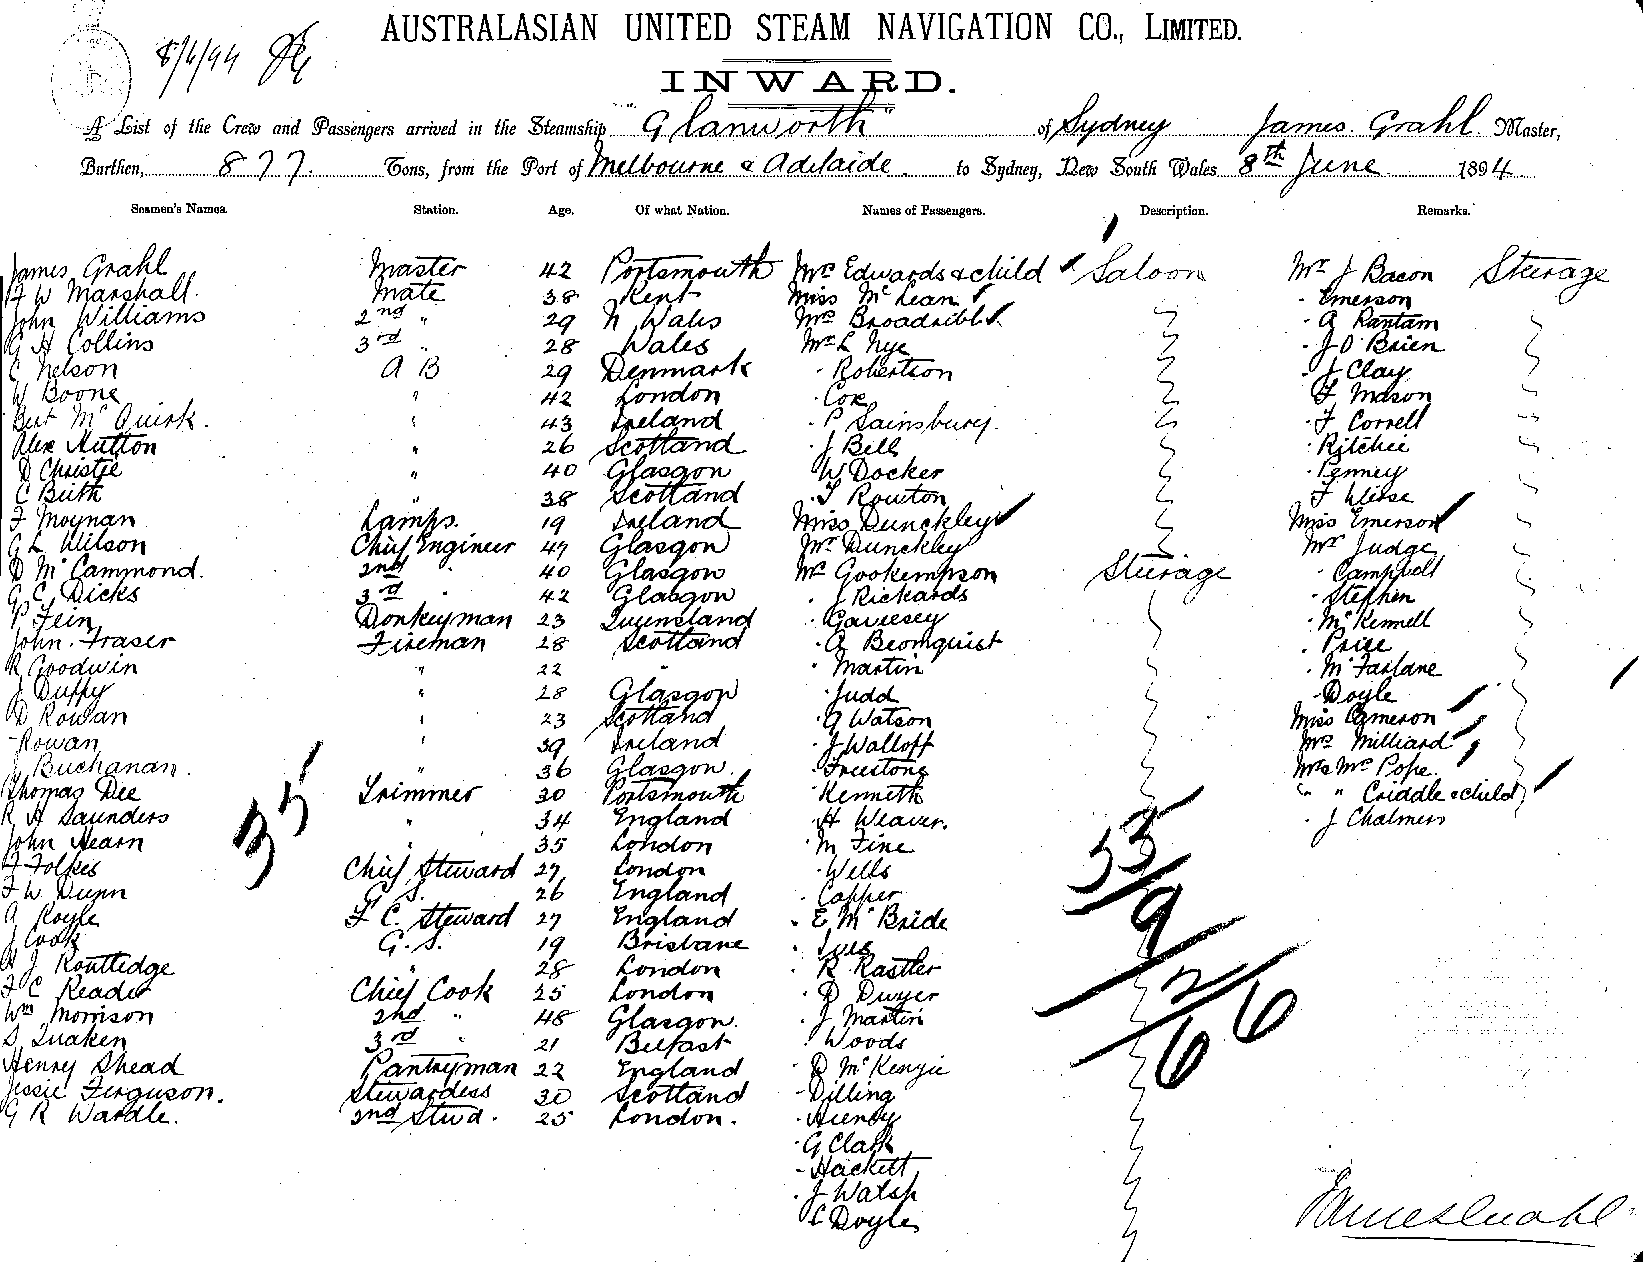 AUSTRALASIAN UNITED STEAM NAVIGATION CO., LIMITED.
8/6/94
INWARD.
A List of the Crew and Passengers arrived in the Steamship "Glanworth" of Sydney James Grahl Master,
Burthen, 877. Tons, from the Port of Melbourne & Adelaide. to Sydney, New South Wales 8th June 1894
Seamen's Names. Station. Age. Of what Nation. Names of Passengers. Description. Remarks.
James Grahl Master 42 Portsmouth Mrs Edwards & child Saloon Mr J Bacon Sturage
H W Marshall. Mate 38 Kent Miss McLean " Emerson
John Williams 2nd " 29 N Wales Mrs Broadribb " A Rantam
G H Collins 3rd " 28 Wales Mr L Nye " J O'Brien
C Nelson A B 29 Denmark " Robertson " J Clay
W Boone " 42 London " Cox F Mason
Bert McQuirk. " 43 Ireland " P Sainsbury. " F Correll
Alex Hutton " 26 Scotland " J Bell " Ritchie
D Christie " 40 Glasgow W Docker " Penney
C Buth " 38 Scotland " T Rowton F Weise
F Moynan Lamps. 19 Ireland Miss Dunckley Miss Emerson
G L Wilson Chief Engineer 47 Glasgow Mr Dunckley Mr Judge
D McCammond. 2nd " 40 Glasgow Mr Gookempson Sturage " Campbell
G C Dicks 3rd " 42 Glasgow " J Rickards " Stephen
P Fein Donkeyman 23 Queensland " Gaviesey " McKennell
John Fraser Fireman 28 Scotland " A Beomquist " Price
R Goodwin " 22 " " Martin " McFarlane
J Duffy " 28 Glasgow " Judd " Doyle
D Rowan " 23 Scotland " G Watson Miss Cameron
Rowan " 39 Ireland " J Walloff Mrs Milliard
J Buchanan. " 36 Glasgow. " Freestone Mr & Mrs Pope.
Thomas Dee Trimmer 30 Portsmouth " Kenneth " " Criddle & child
R H Saunders " 34 England " H Weaver. " J Chalmers
John Hearn " 35 London " M Fine
F Folkes Chief Steward 27 London " Wells
F W Dunn G. S. 26 England " Capper
A Royle F C. Steward 27 England " E McBride
J Cook G. S. 19 Brisbane " Ives
H J Routledge " 28 London " R Rastler
F C Reader Chief Cook 25 London " D Dwyer
Wm Morrison 2nd " 48 Glasgow. " J Martin
S Quaken 3rd " 21 Belfast " Woods
Henry Shead Pantryman 22 England " D McKenzie
Jessie Ferguson. Stewardess 30 Scotland " Dilling
G R Wardle. 2nd Stwd. 25 London. " Henry
" G Clark
" Hackett
" J Walsh
C Doyle
35
53
9
2
66
James Grahl